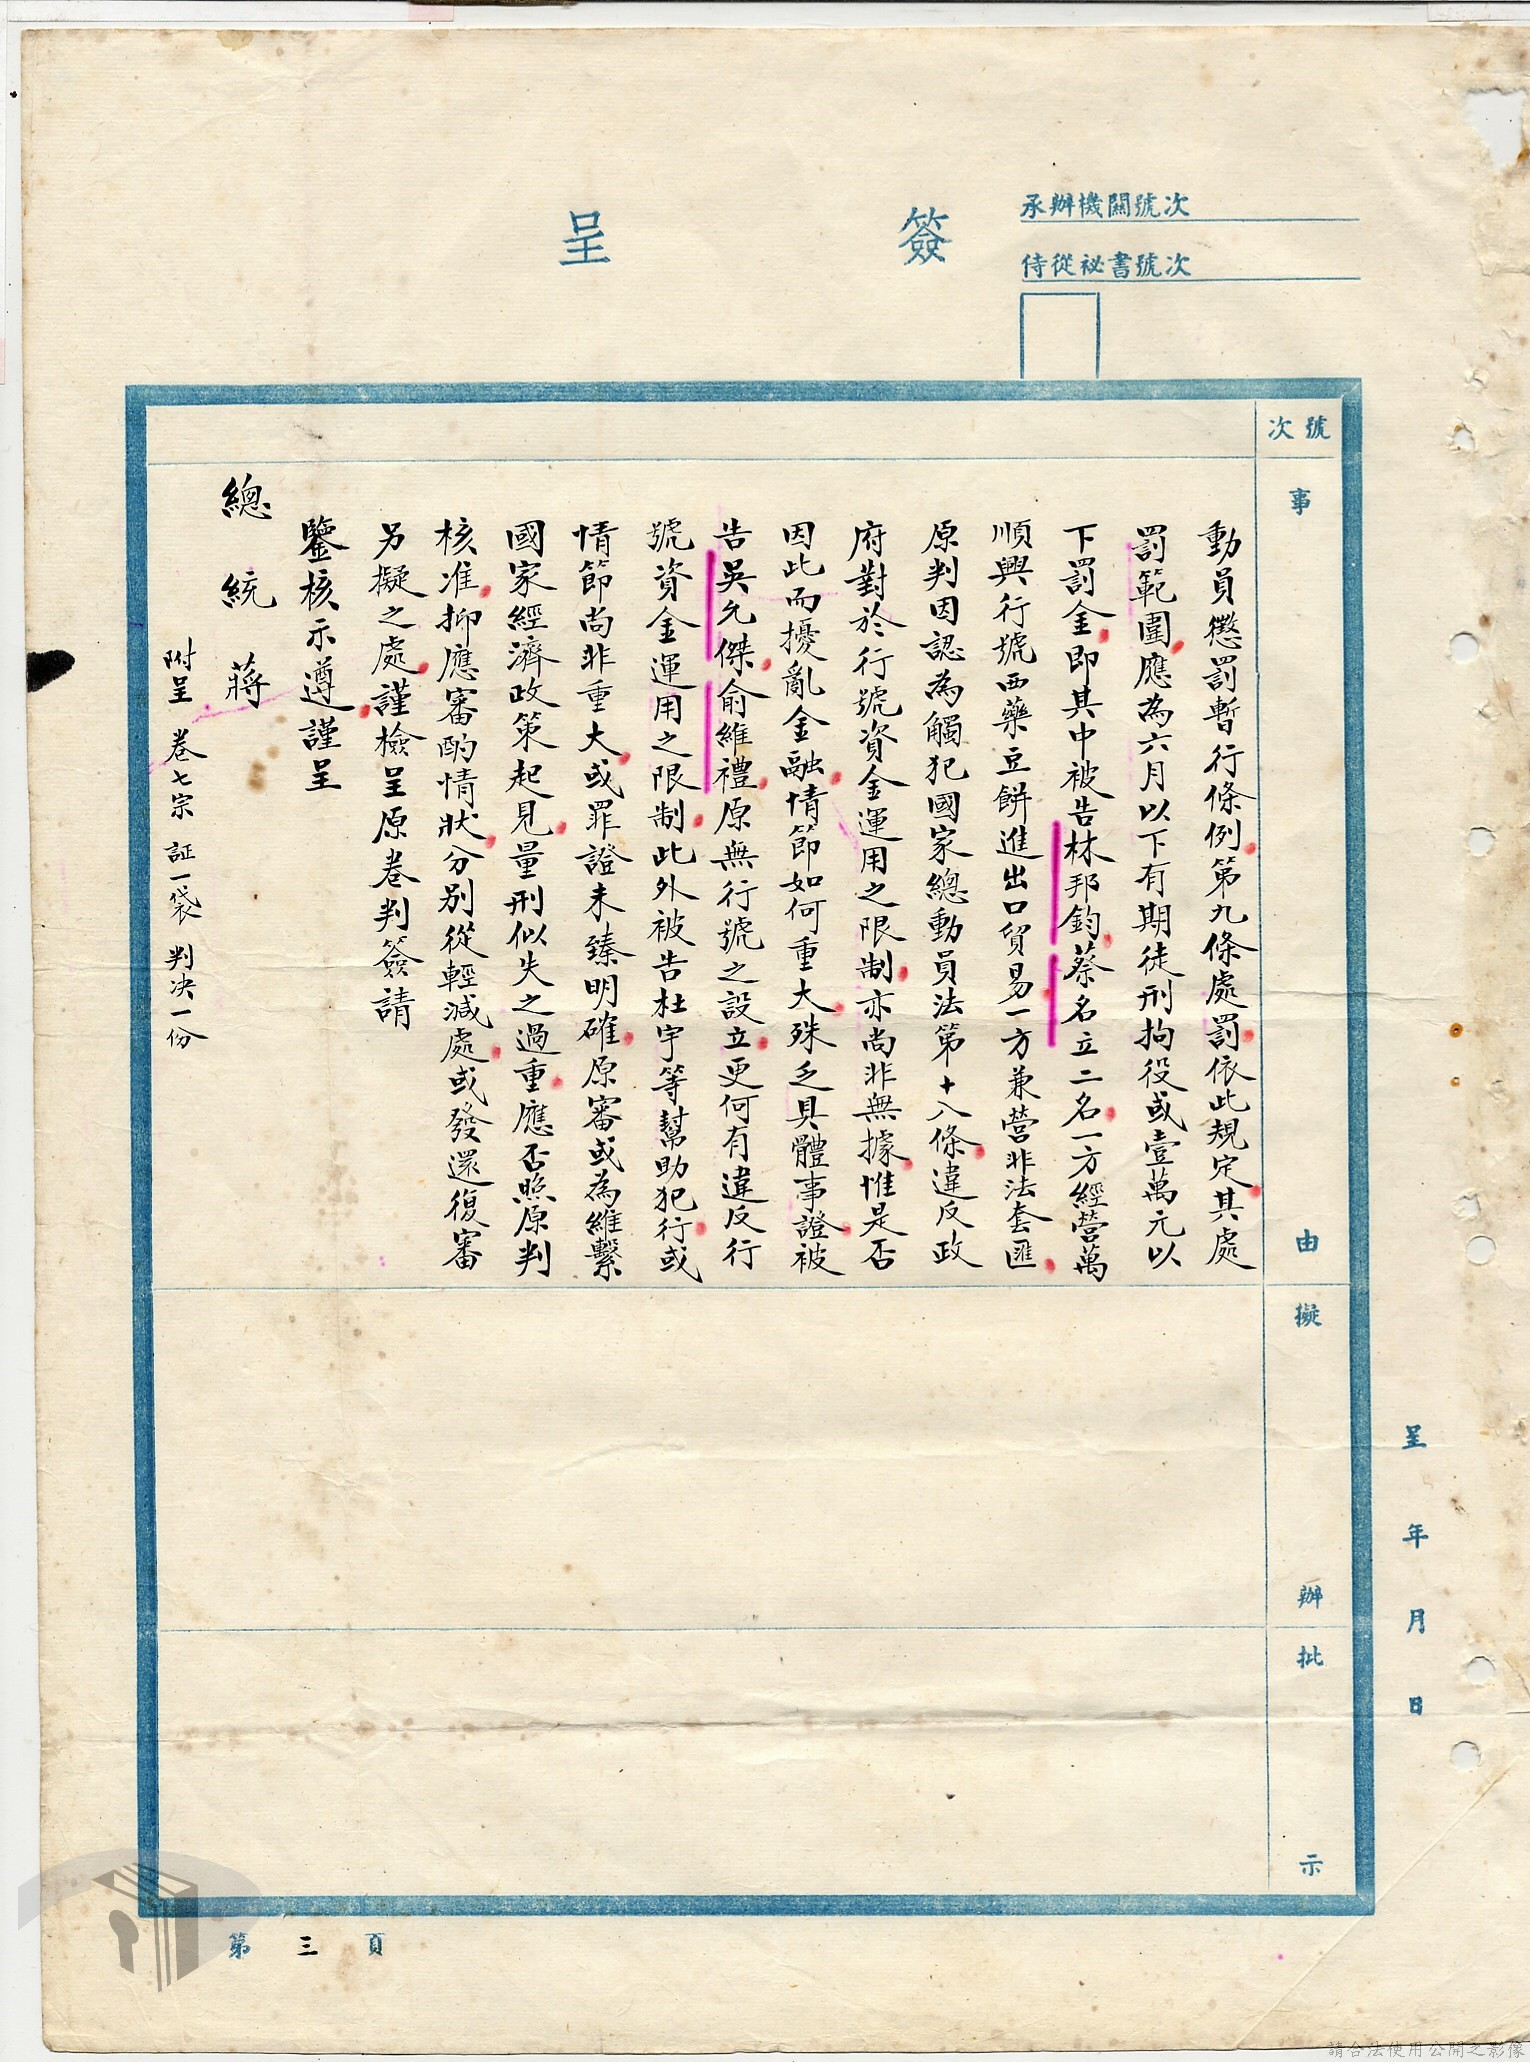 簽呈
承辦機關號次
侍從祕書號次
號次
事由
擬辦
批示
呈 年 月 日
動員懲罰暫行條例第九條處罰依此規定其處
罰範圍應為六月以下有期徒刑拘役或壹萬元以
下罰金即其中被告林邦鈞蔡名立二名一方經營萬
順興行號西藥豆餅進出口貿易一方兼營非法套匯
原判因認為觸犯國家總動員法第十八條違反政
府對於行號資金運用之限制亦尚非無據惟是否
因此而擾亂金融情節如何重大殊乏具體事證被
告吳允傑俞維禮原無行號之設立更何有違反行
號資金運用之限制此外被告杜宇等幫助犯行或
情節尚非重大或罪證未臻明確原審或為維繫
國家經濟政策起見量刑似失之過重應否照原判
核准抑應審酌情狀分別從輕減處或發還復審
另擬之處謹檢呈原卷判簽請
鑒核示遵謹呈
總統 蔣
附呈 卷七宗 証一袋 判决一份
第三頁
請合法使用公開之影像